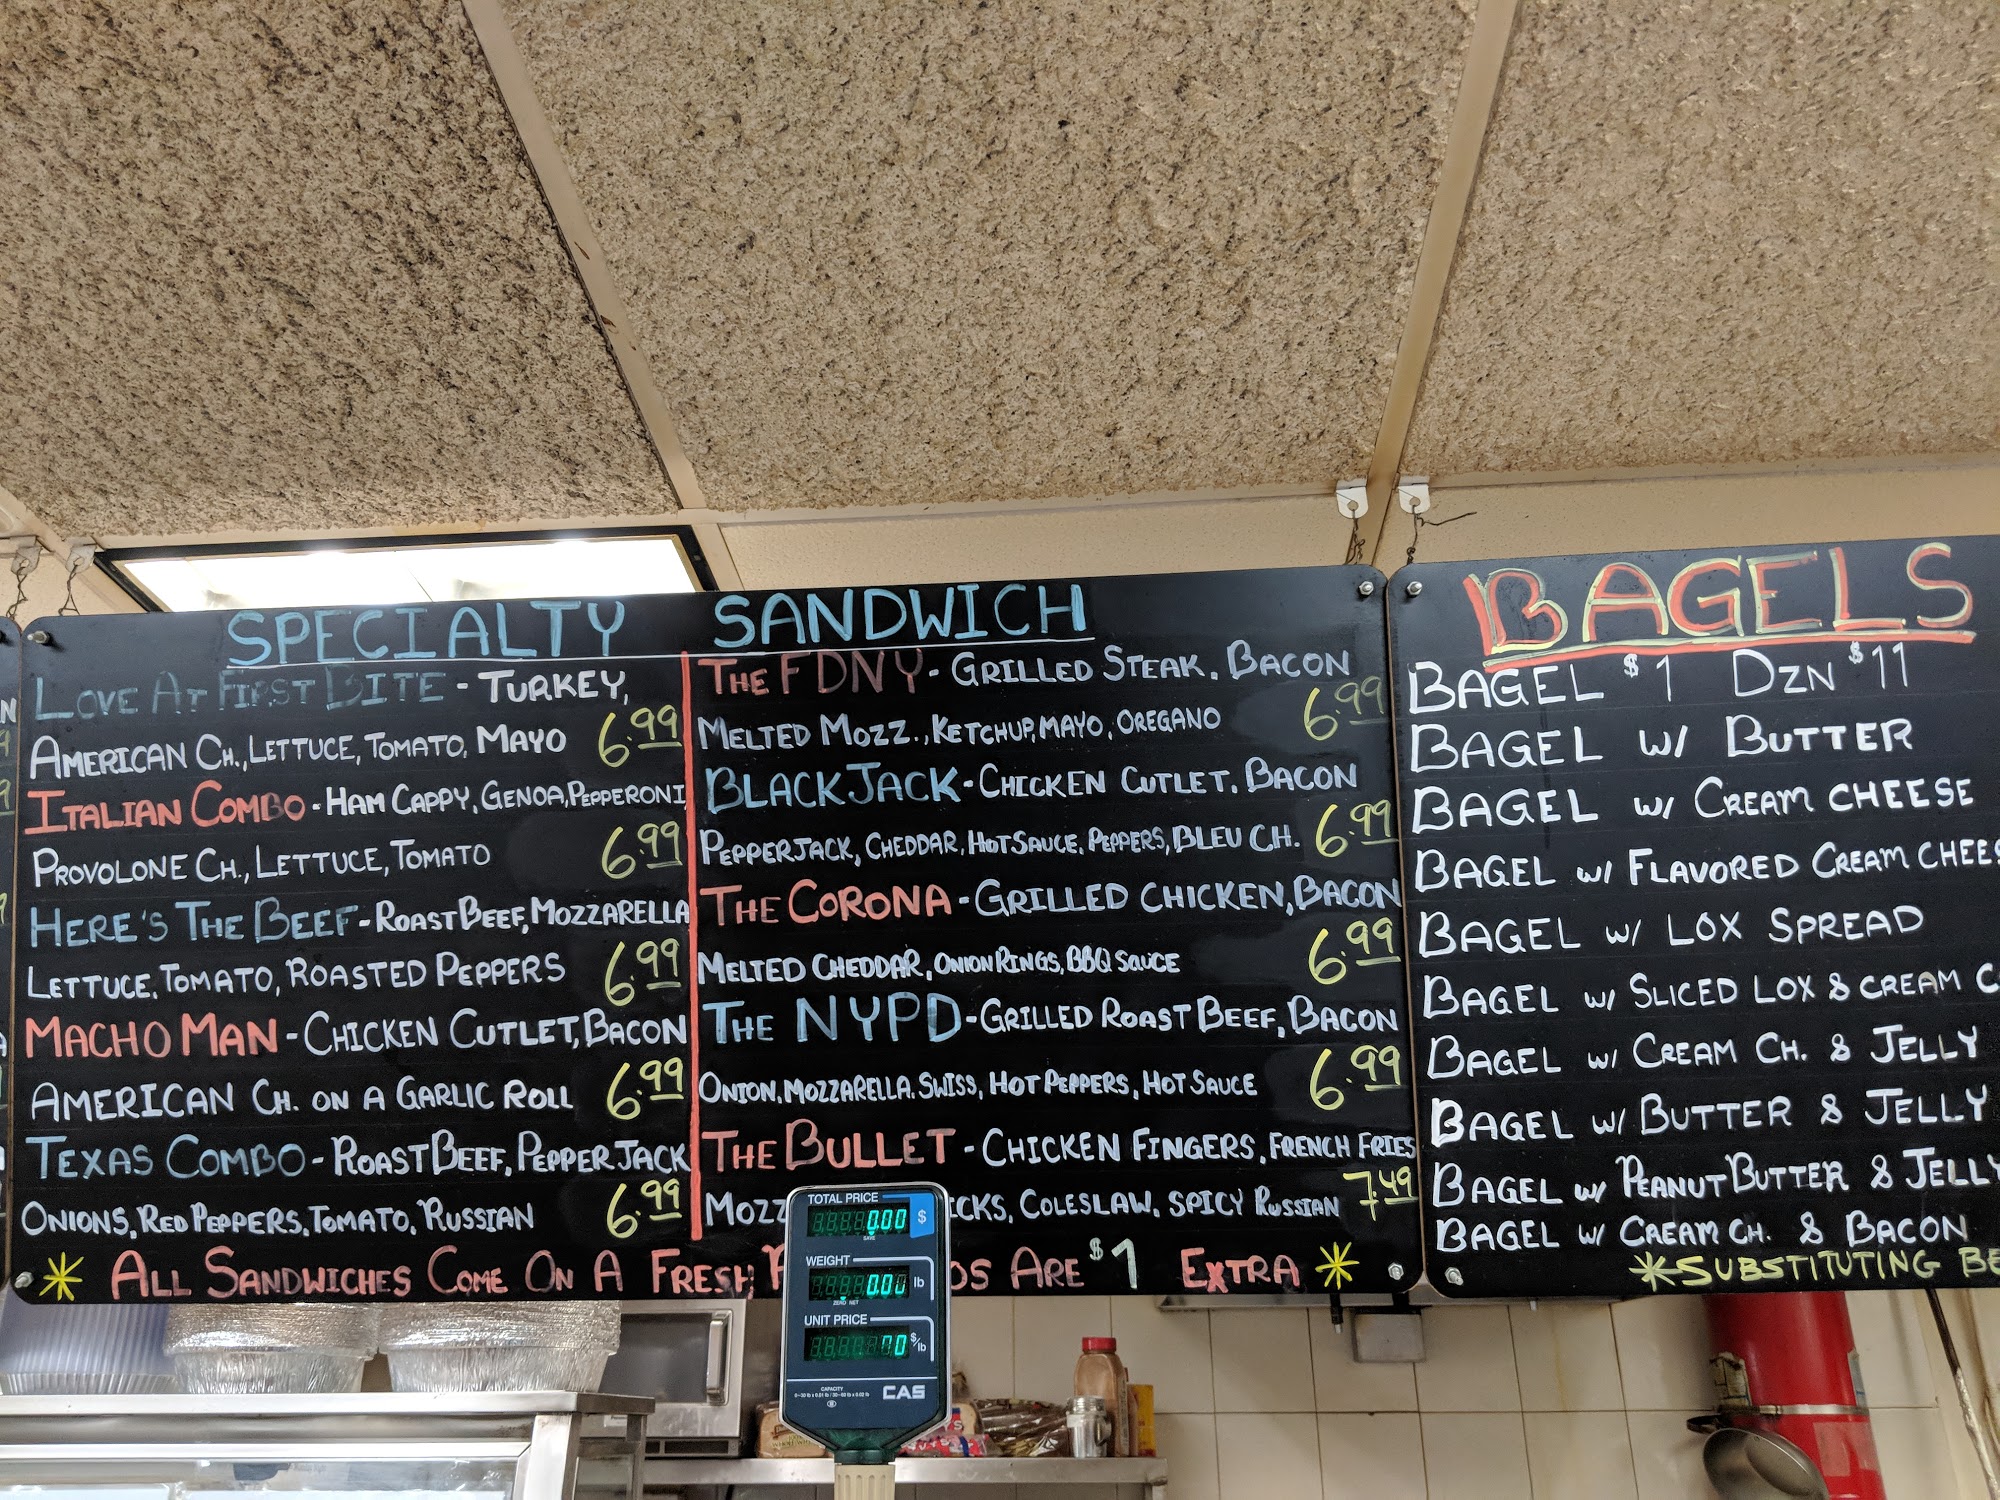 SPECIALTY SANDWICH
LOVE AT FIRST BITE - TURKEY,
AMERICAN CH., LETTUCE, TOMATO, MAYO 6.99
ITALIAN COMBO - HAM CAPPY, GENOA, PEPPERONI
PROVOLONE CH., LETTUCE, TOMATO 6.99
HERE'S THE BEEF - ROAST BEEF, MOZZARELLA
LETTUCE, TOMATO, ROASTED PEPPERS 6.99
MACHO MAN - CHICKEN CUTLET, BACON
AMERICAN CH. ON A GARLIC ROLL 6.99
TEXAS COMBO - ROAST BEEF, PEPPER JACK
ONIONS, RED PEPPERS, TOMATO, RUSSIAN 6.99
THE FDNY - GRILLED STEAK, BACON
MELTED MOZZ., KETCHUP, MAYO, OREGANO 6.99
BLACKJACK - CHICKEN CUTLET, BACON
PEPPERJACK, CHEDDAR, HOT SAUCE, PEPPERS, BLEU CH. 6.99
THE CORONA - GRILLED CHICKEN, BACON
MELTED CHEDDAR, ONION RINGS, BBQ SAUCE 6.99
THE NYPD - GRILLED ROAST BEEF, BACON
ONION, MOZZARELLA, SWISS, HOT PEPPERS, HOT SAUCE 6.99
THE BULLET - CHICKEN FINGERS, FRENCH FRIES
MOZZ ICKS, COLESLAW, SPICY RUSSIAN 7.49
* ALL SANDWICHES COME ON A FRESH OS ARE $1 EXTRA *
BAGELS
BAGEL $1 DZN $11
BAGEL W/ BUTTER
BAGEL W/ CREAM CHEESE
BAGEL W/ FLAVORED CREAM CHEES
BAGEL W/ LOX SPREAD
BAGEL W/ SLICED LOX & CREAM C
BAGEL W/ CREAM CH. & JELLY
BAGEL W/ BUTTER & JELLY
BAGEL W/ PEANUT BUTTER & JELLY
BAGEL W/ CREAM CH. & BACON
*SUBSTITUTING BE
TOTAL PRICE
0.00 $
WEIGHT
0.00 lb
ZERO NET
UNIT PRICE
0.0 $/lb
CAPACITY
CAS